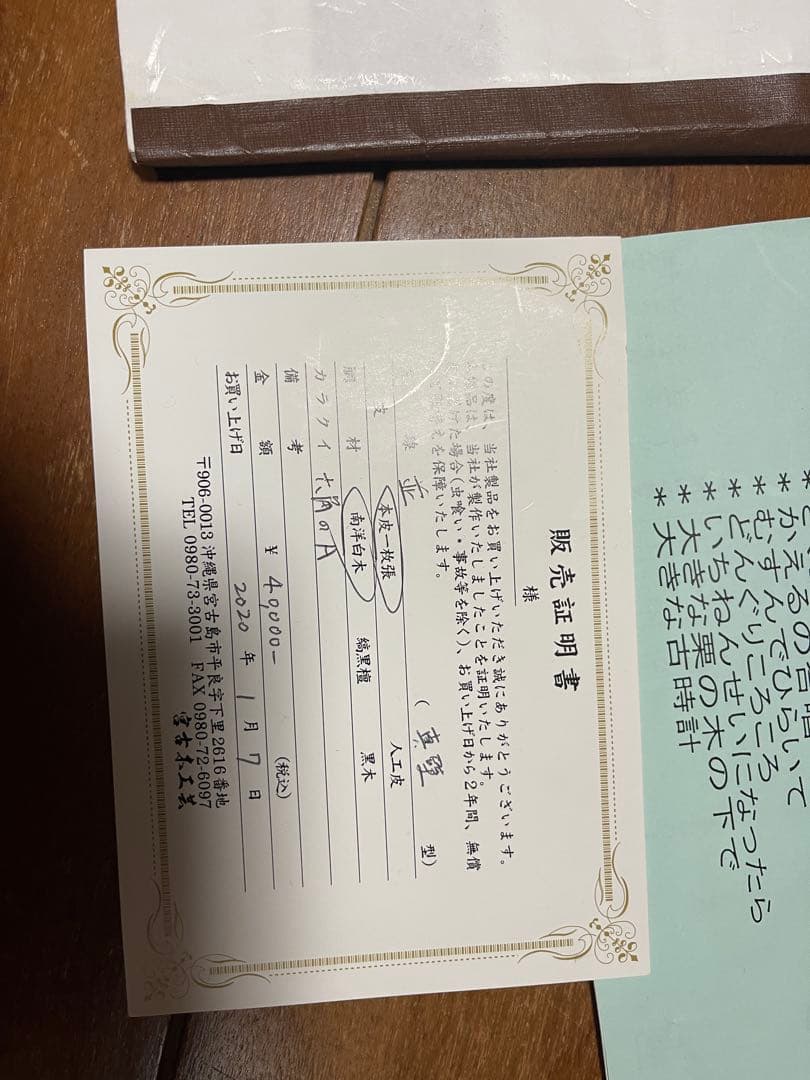 販売証明書
様
の度は、当社製品をお買い上げいただき誠にありがとうございます。
品は、当社が製作いたしましたことを証明いたします。
けた場合(虫喰い・事故等を除く)、お買い上げ日から2年間、無償
えを保障いたします。
並 (真壁 型)
皮 本皮一枚張 人工皮
材 南洋白木 縞黒檀 黒木
カラクイ 六角のA
備考
金額 ¥ 49,000- (税込)
お買い上げ日 2020年 1月 7日
〒906-0013 沖縄県宮古島市平良字下里2616番地
TEL 0980-73-3001 FAX 0980-72-6097
宮古木工芸
かえるの合唱
*むすんでひらいて
*どんぐりころころ
*いちねんせいになったら
*大きな栗の木の下で
*大きな古時計